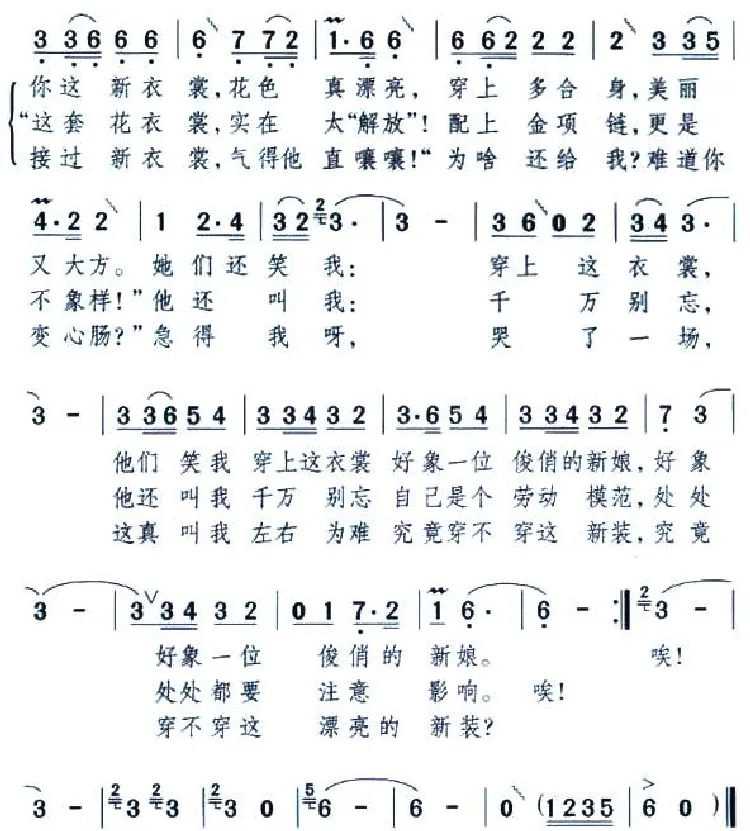 3 3 6 6 6 | 6 7 7 2 | 1·6 6 | 6 6 2 2 2 | 2 3 3 5 |
你这 新衣 裳,花色 真漂亮, 穿上 多合 身,美丽
“这套 花衣 裳,实在 太“解放”!配上 金项 链,更是
接过 新衣 裳,气得他 直嚷嚷!“为啥 还给 我?难道你
4·2 2 | 1 2·4 | 3 2 2 3· | 3 - | 3 6 0 2 | 3 4 3· |
又大方。她们还笑 我: 穿上 这 衣 裳,
不象样!”他 还 叫 我: 千 万 别 忘,
变心肠?”急 得 我 呀, 哭 了 一 场,
3 - | 3 3 6 5 4 | 3 3 4 3 2 | 3·6 5 4 | 3 3 4 3 2 | 7 3 |
他们 笑我 穿上这衣裳 好象一位 俊俏的新娘,好象
他还 叫我 千万 别忘 自己是个 劳动 模范,处处
这真 叫我 左右 为难 究竟穿不 穿这 新装,究竟
3 - | 3 3 4 3 2 | 0 1 7·2 | 1 6· | 6 - :| 2 3 - |
好象一位 俊俏的 新娘。 唉!
处处都要 注意 影响。唉!
穿不穿这 漂亮的 新装?
3 - | 2 3 2 3 | 2 3 0 | 5 6 - | 6 - | 0 (1235 | 6 0 )|